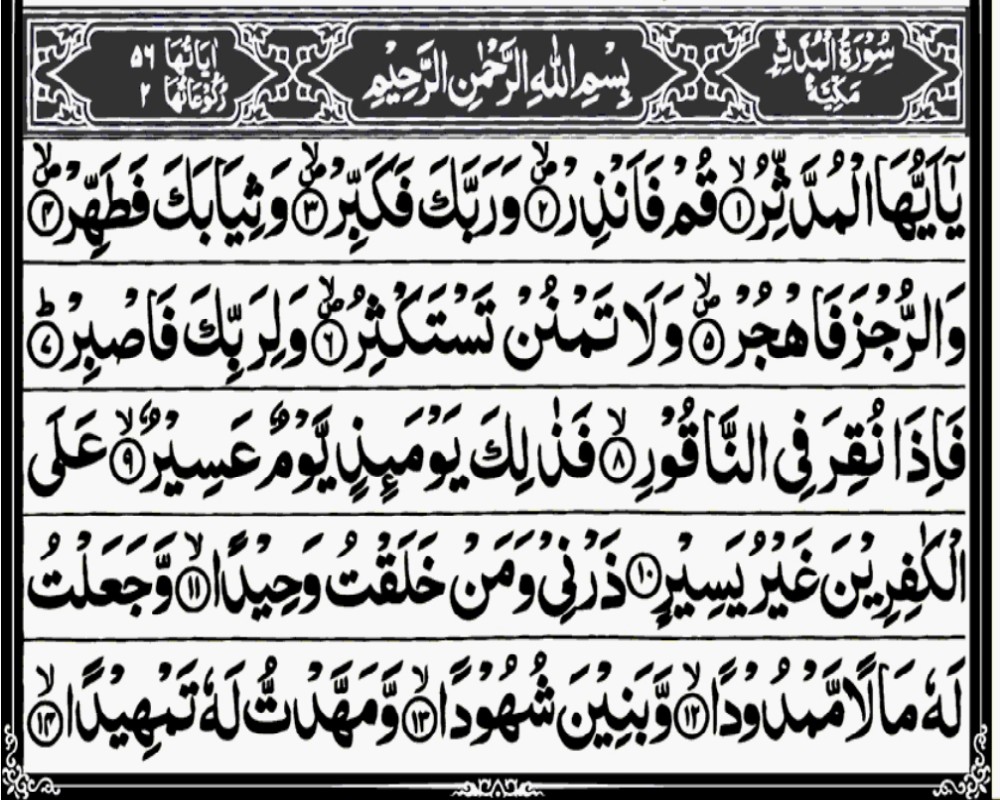 سُوْرَةُ الْمُدَّثِّرِ مَكِّيَّةٌ
بِسْمِ اللّٰهِ الرَّحْمٰنِ الرَّحِيْمِ
اٰيَاتُهَا ٥٦ رُكُوْعَاتُهَا ٢
يٰۤاَيُّهَا الْمُدَّثِّرُۙ‏﴿۱﴾ قُمْ فَاَنْذِرْ۪ۙ‏﴿۲﴾ وَرَبَّكَ فَكَبِّرْ۪ۙ‏﴿۳﴾ وَثِيَابَكَ فَطَهِّرْ۪ۙ‏﴿۴﴾
وَالرُّجْزَ فَاهْجُرْ۪ۙ‏﴿۵﴾ وَلَا تَمْنُنْ تَسْتَكْثِرُ۪ۙ‏﴿۶﴾ وَلِرَبِّكَ فَاصْبِرْؕ‏﴿۷﴾
فَاِذَا نُقِرَ فِى النَّاقُوْرِۙ‏﴿۸﴾ فَذٰلِكَ يَوْمَئِذٍ يَّوْمٌ عَسِيْرٌۙ‏﴿۹﴾ عَلَى
الْكٰفِرِيْنَ غَيْرُ يَسِيْرٍ‏﴿۱۰﴾ ذَرْنِىْ وَمَنْ خَلَقْتُ وَحِيْدًاۙ‏﴿۱۱﴾ وَّجَعَلْتُ
لَهٗ مَالًا مَّمْدُوْدًاۙ‏﴿۱۲﴾ وَّبَنِيْنَ شُهُوْدًاۙ‏﴿۱۳﴾ وَّمَهَّدْتُّ لَهٗ تَمْهِيْدًاۙ‏﴿۱۴﴾